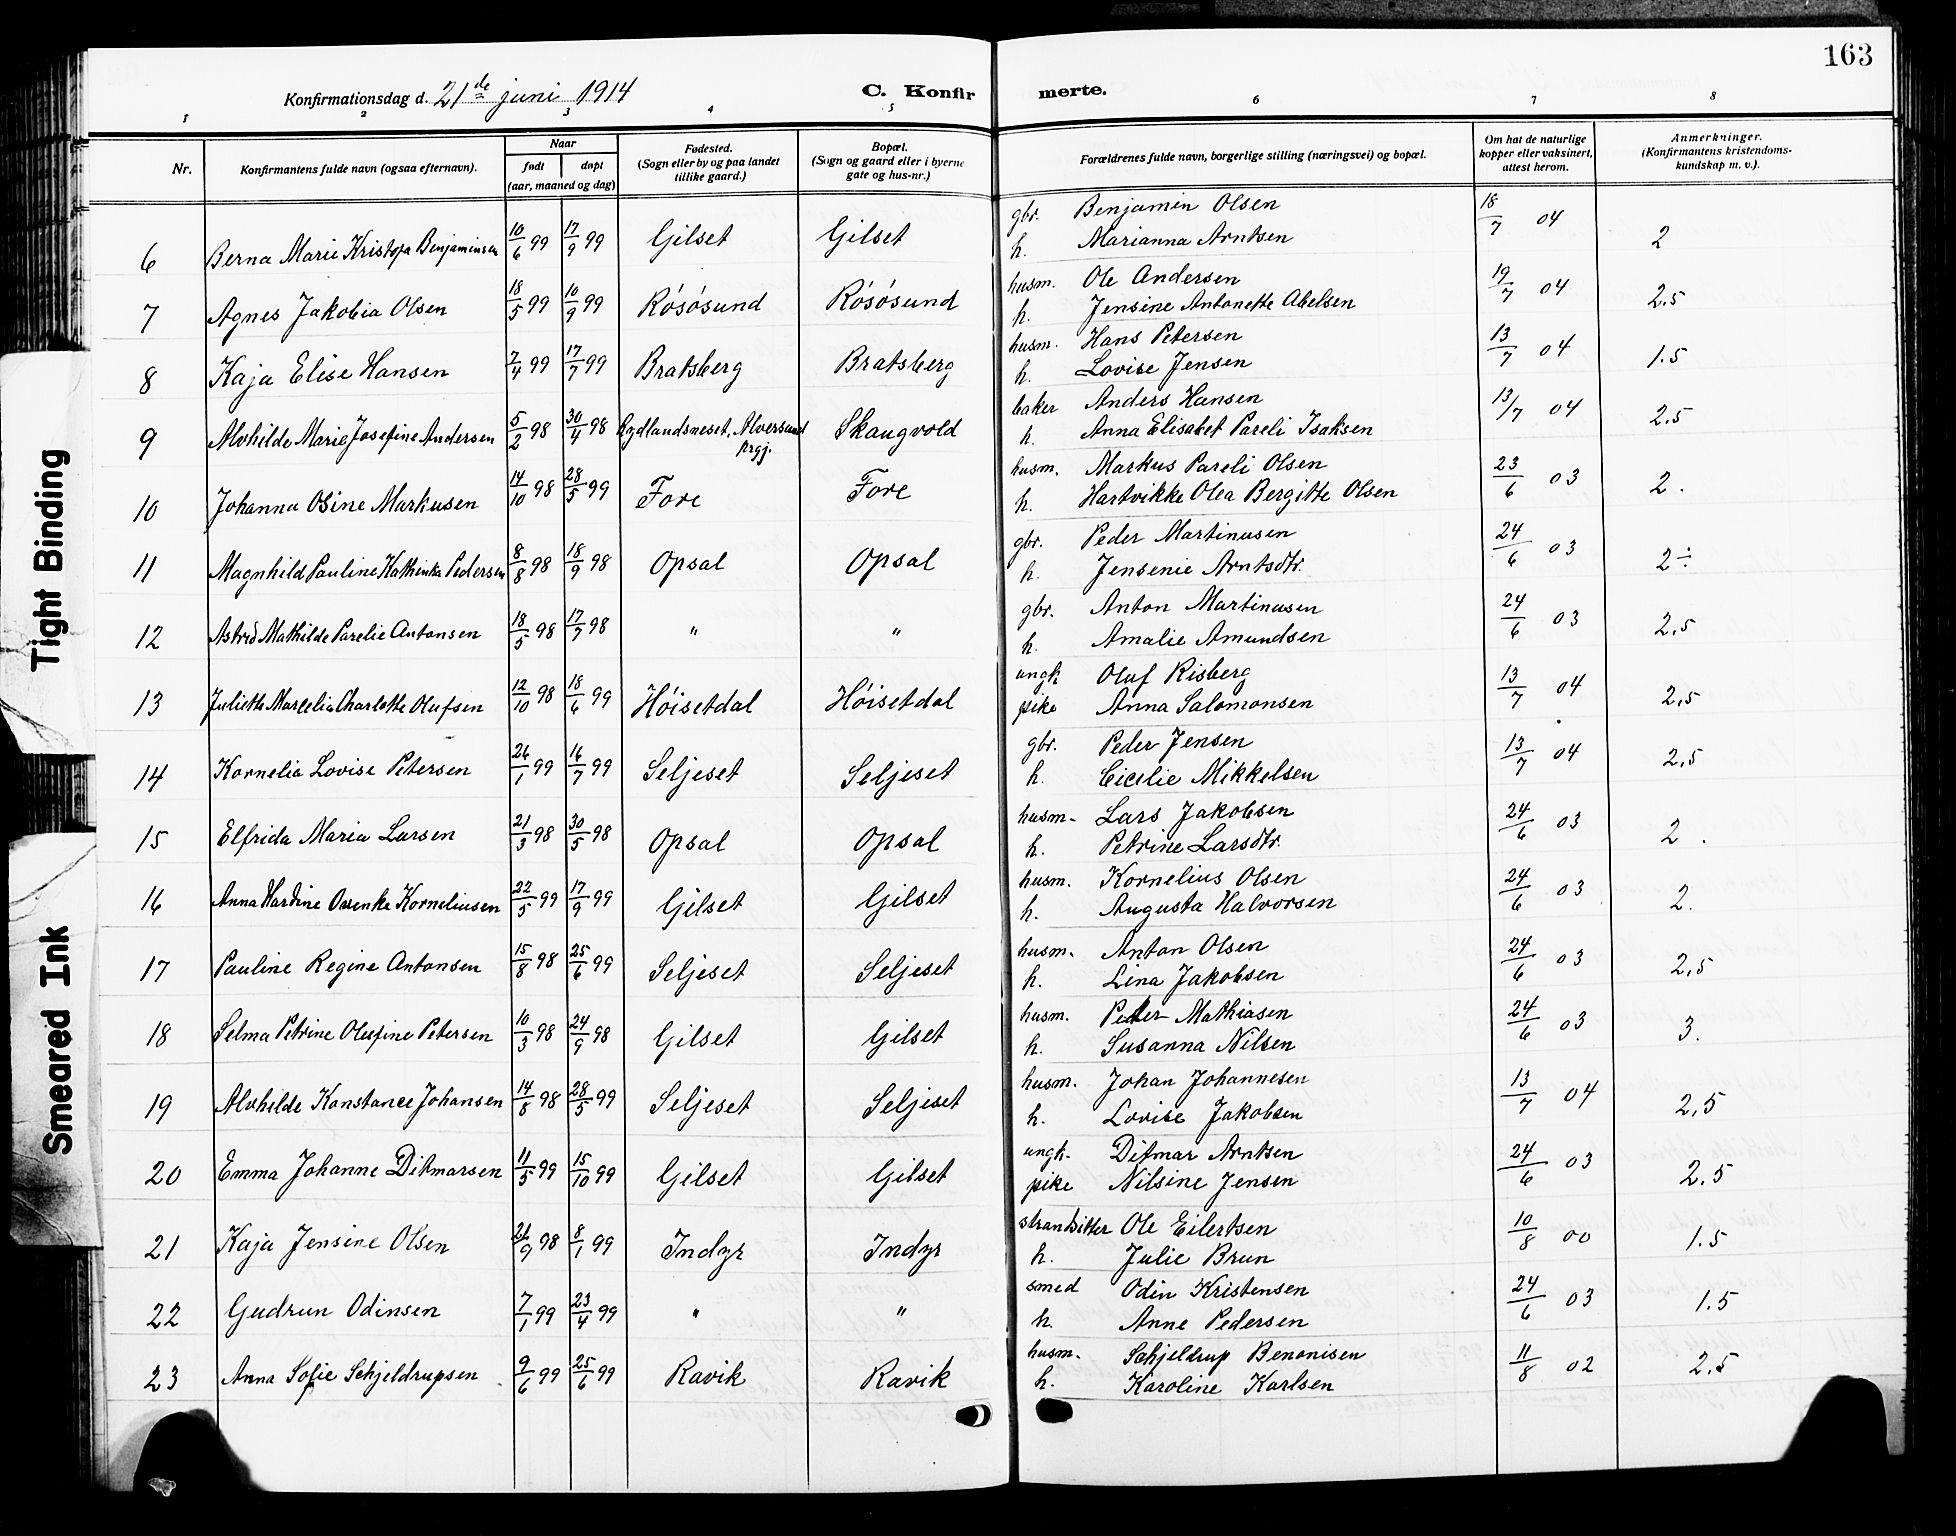 163
Konfirmationsdag d. 21de juni 1914
C. Konfir merte.
1 2 3 4 5 6 7 8
Nr.
Konfirmantens fulde navn (ogsaa efternavn).
Naar
født døpt
(aar, maaned og dag)
Fødested.
(Sogn eller by og paa landet
tillike gaard.)
Bopæl.
(Sogn og gaard eller i byerne
gate og hus-nr.)
Forældrenes fulde navn, borgerlige stilling (næringsvei) og bopæl.
Om hat de naturlige
kopper eller vaksinert,
attest herom.
Anmerkninger.
(Konfirmantens kristendoms-
kundskap m. v.).
6 Berna Marie Kristofa Benjaminsen 10/6 99 17/9 99 Gilset Gilset gbr. Benjamin Olsen 18/7 04 2
h. Marianna Arntsen
7 Agnes Jakobia Olsen 18/5 99 10/9 99 Røsøsund Røsøsund husm. Ole Andersen 19/7 04 2.5
h. Jensine Antonette Abelsen
8 Kaja Elise Hansen 7/4 99 17/7 99 Bratsberg Bratsberg husm. Hans Petersen 13/7 04 1.5
h. Lovise Jensen
9 Alvhilde Marie Josefine Andersen 5/2 98 30/4 98 Rydlandsneset, Alversund prgj. Skaugvold baker Anders Hansen 13/7 04 2.5
h. Anna Elisabet Pareli Isaksen
10 Johanna Osine Markusen 14/10 98 28/5 99 Fore Fore husm. Markus Pareli Olsen 23/6 03 2.
h. Hartvikke Olea Bergitte Olsen
11 Magnhild Pauline Kathinka Pedersen 8/8 98 18/9 98 Opsal Opsal gbr. Peder Martinusen 24/6 03 2÷
h. Jensenie Arntsdtr.
12 Astrid Mathilde Parelie Antonsen 18/5 98 17/7 98 " " gbr. Anton Martinusen 24/6 03 2,5
h. Amalie Amundsen
13 Juliette Marcelia Charlotte Olufsen 12/10 98 18/6 99 Høisetdal Høisetdal ungk. Oluf Risberg 13/7 04 2,5
pike Anna Salomonsen
14 Kornelia Lovise Petersen 26/1 99 16/7 99 Seljeset Seljeset gbr. Peder Jensen 13/7 04 2,5
h. Cicelie Mikkelsen
15 Elfrida Maria Larsen 21/3 98 30/5 98 Opsal Opsal husm. Lars Jakobsen 24/6 03 2.
h. Petrine Larsdtr.
16 Anna Hardine Ovenke Korneliusen 22/5 99 17/9 99 Gilset Gilset husm. Kornelius Olsen 24/6 03 2.
h. Augusta Halvorsen
17 Pauline Regine Antonsen 15/8 98 25/6 99 Seljeset Seljeset husm. Anton Olsen 24/6 03 2,5
h. Lina Jakobsen
18 Selma Petrine Olufine Petersen 10/3 98 24/9 98 Gilset Gilset husm. Peder Mathiasen 24/6 03 3.
h. Susanna Nilsen
19 Alvhilde Konstance Johansen 14/8 98 28/5 99 Seljeset Seljeset husm. Johan Johannesen 13/7 04 2,5
h. Lovise Jakobsen
20 Emma Johanne Ditmarsen 11/5 99 15/10 99 Gilset Gilset ungk. Ditmar Arntsen 24/6 03 2.5
pike Nilsine Jensen
21 Kaja Jensine Olsen 21/9 98 8/1 99 Indyr Indyr strandsitter Ole Eilertsen 10/8 00 1.5
h. Julie Brun
22 Gudrun Odinsen 7/1 99 23/4 99 " " smed Odin Kristensen 24/6 03 1.5
h. Anne Pedersen
23 Anna Sofie Schjeldrupsen 9/6 99 25/6 99 Ravik Ravik husm. Schjeldrup Benonisen 11/8 02 2.5
h. Karoline Karlsen
Tight Binding
Smeared Ink